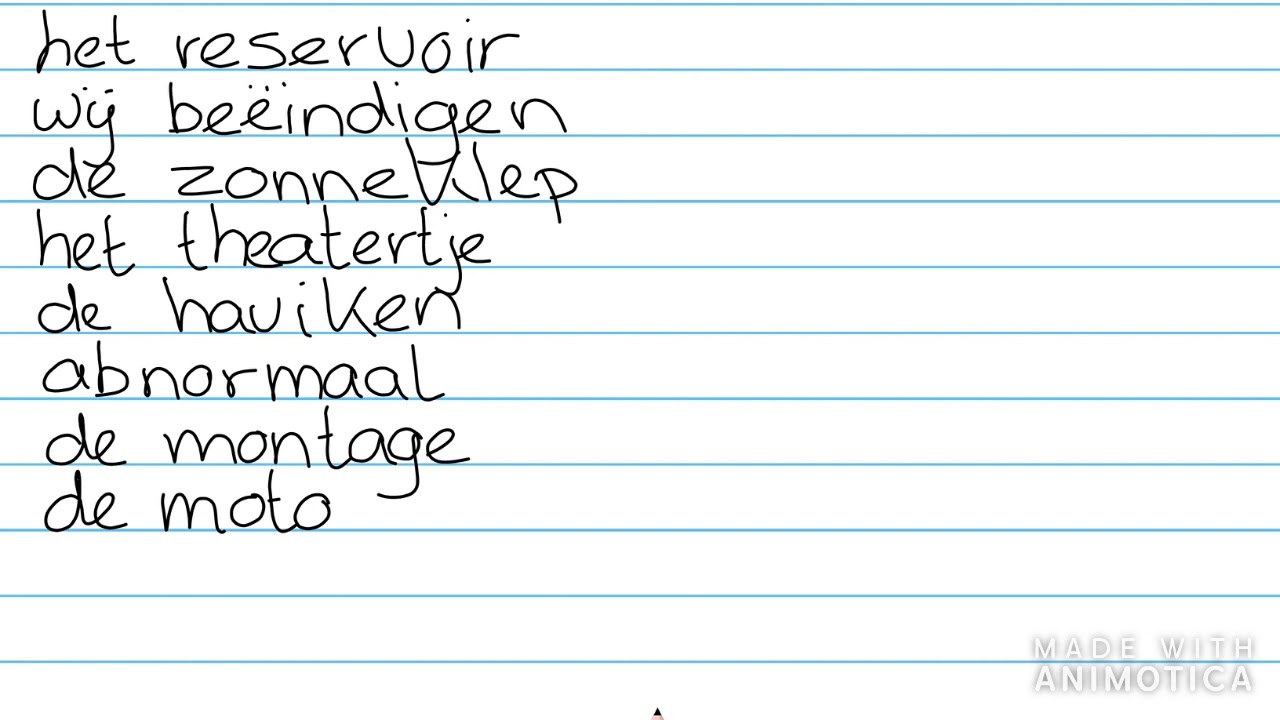 het reservoir
wij beëindigen
de zonneklep
het theatertje
de haviken
abnormaal
de montage
de moto
MADE WITH
ANIMOTICA